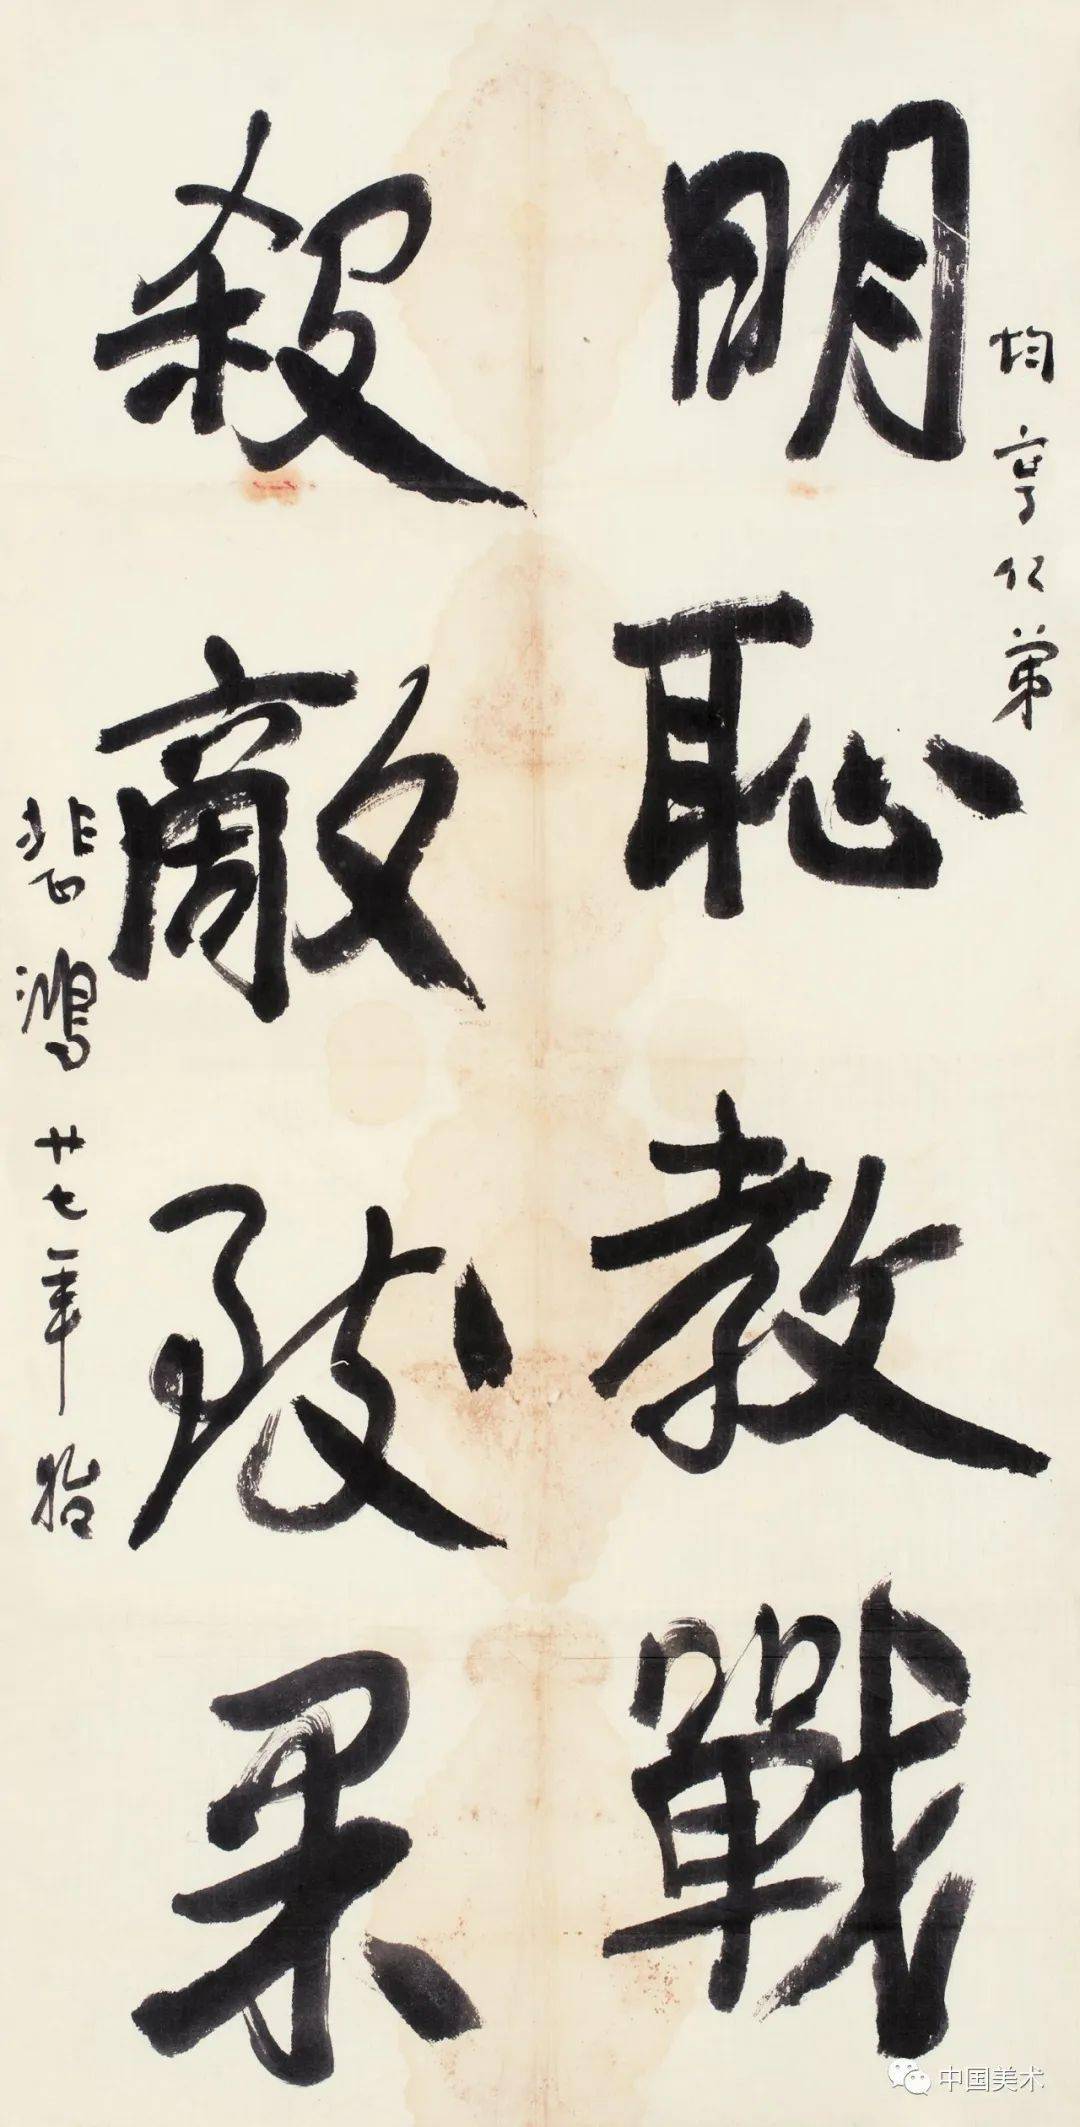 均亨仁弟
明恥教戰
殺敵致果
悲鴻 廿七年
中国美术